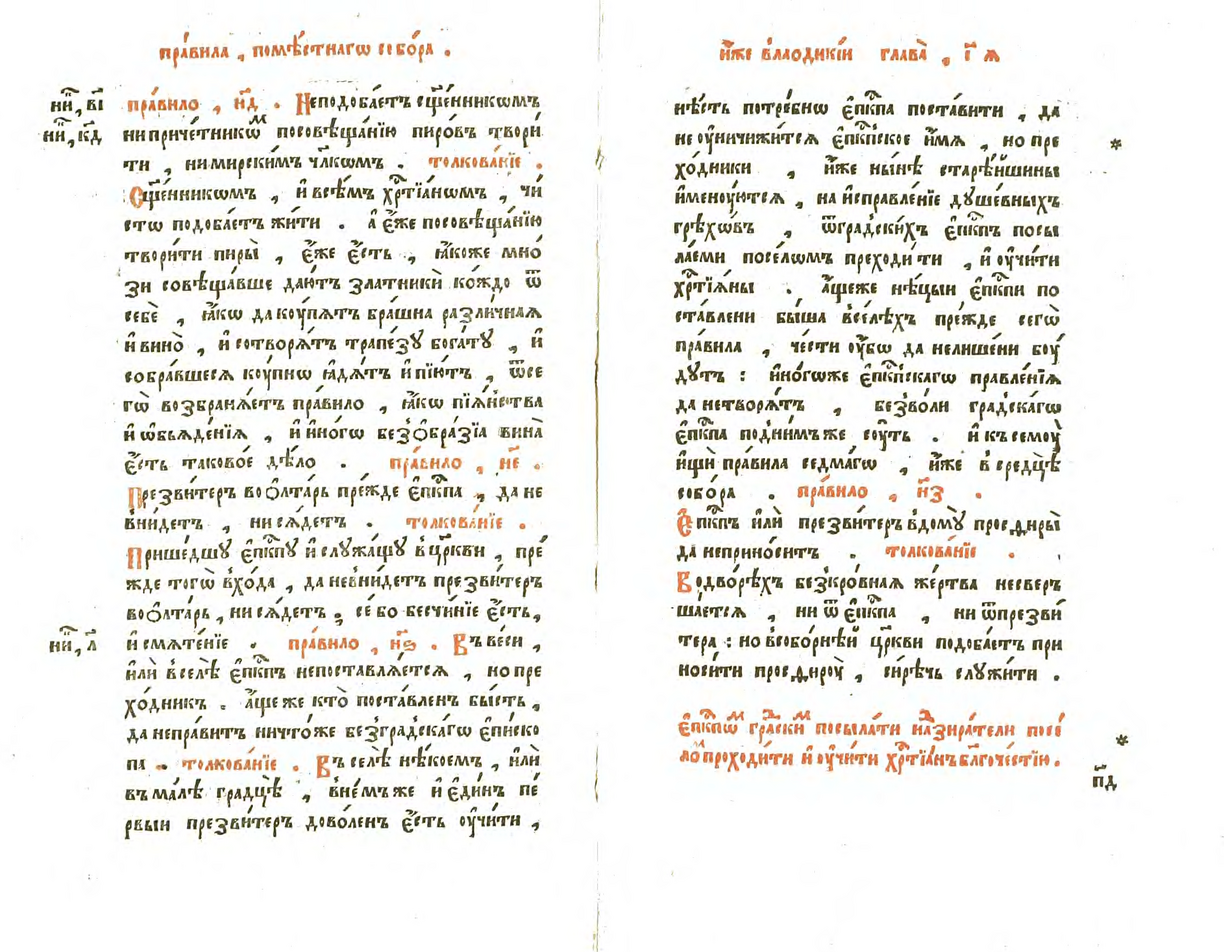 пра́вила , помѣ́стнагѡ собо́ра .
ни҃, вı҃
ни҃, кд҃
пра́вило , нд҃ . Неподоба́етъ сщ҃е́нникѡмъ
нипричє́тникѡⷨ посовѣща́нїю пирѡ́въ твори́
ти , нимирски́мъ чл҃кѡмъ . толкова́нїе .
Сщ҃е́нникѡмъ , и҆ всѣ́мъ хрⷭ҇тїа́нѡмъ , чи́
стѡ подоба́етъ жи́ти . а҆ є҆́же посовѣща́нїю
твори́ти пиры̀ , є҆́же є҆́сть , ꙗ҆́коже мно́
зи совѣща́вше даю́тъ златникѝ ко́ждо ѿ
себѐ , ꙗ҆́кѡ да кꙋ́пѧтъ бра́шна разли́чнаѧ
и҆ вино̀ , и҆ сотворѧ́тъ трапе́зꙋ бога́тꙋ , и҆
собра́вшесѧ кꙋ́пнѡ ꙗ҆дѧ́тъ и҆ пїю́тъ , ѿсе
гѡ̀ возбранѧ́етъ пра́вило , ꙗ҆́кѡ пїѧ́нства
и҆ ѡ҆бьѧде́нїѧ , и҆ и҆но́гѡ безѻбра́зїа вина̀
є҆́сть таково́е дѣ́ло . пра́вило , не҃ .
Презви́теръ воѻлта́рь пре́жде є҆пⷭ҇кпа , да не
вни́детъ , ни сѧ́детъ . толкова́нїе .
Прише́дшꙋ є҆пⷭ҇кпꙋ и҆ слꙋжа́щꙋ в цр҃кви , пре́
жде тогѡ̀ вхо́да , да невни́детъ презви́теръ
воѻлта́рь , ни сѧ́детъ ; се́ бо бесчи́нїе є҆́сть,
ни҃, л҃
и҆ смѧте́нїе . пра́вило , нѕ҃ . Въ ве́си ,
и҆лѝ в селѣ̀ є҆пⷭ҇кпъ непоставлѧ́етсѧ , но пре
хо́дникъ . а҆́ще же кто̀ поста́вленъ бы́сть ,
да непра́витъ ничто́же безгра́дскагѡ є҆пи́ско
па . толкова́нїе . Въ селѣ̀ нѣ́коемъ , и҆лѝ
въ ма́лѣ градцѣ̀ , вне́мъже и҆ є҆ди́нъ пе́
рвыи презви́теръ дово́ленъ є҆́сть ᲂу҆чи́ти ,
и҆́же в лаодикі́и глава̀ , гı҃ ѧ
нѣ́сть потре́бнѡ є҆пⷭ҇кпа поста́вити , да
не ᲂу҆ничижи́тсѧ є҆пⷭ҇кпское и҆́мѧ , но пре
хо́дники , и҆́же ны́нѣ старѣ́йшины
и҆менꙋ́ютсѧ , на и҆справле́нїе дꙋше́вныхъ
грѣхѡ́въ , ѿгра́дскихъ є҆пⷭ҇кпъ посы
ла́еми посе́лѡмъ преходи́ти , и҆ ᲂу҆чи́ти
хрⷭ҇тїѧ́ны . а҆́щеже нѣ́цыи є҆пⷭ҇кпи по
ста́влени бы́ша в се́лѣхъ пре́жде сегѡ̀
пра́вила , че́сти ᲂу҆́бѡ да нелише́ни бꙋ́
дꙋтъ : и҆но́гѡже є҆пⷭ҇кпскагѡ правле́нїѧ
да нетворѧ́тъ , безво́ли гра́дскагѡ
є҆пⷭ҇кпа подни́мъже сꙋ́ть . и҆ къ семꙋ̀
и҆щѝ пра́вила седма́гѡ , и҆́же в средцѣ̀
собо́ра . пра́вило , нз҃ .
Є҆пⷭ҇кпъ и҆лѝ презви́теръ в домꙋ̀ просѳиры̀
да неприно́ситъ . толкова́нїе .
Во дво́рѣхъ безкро́внаѧ же́ртва несвер
ша́етсѧ , ни ѿ є҆пⷭ҇кпа , ни ѿпрезви́
тера : но в собо́рнѣй цр҃кви подоба́етъ при
носи́ти просѳирꙋ̀ , си́рѣчь слꙋжи́ти .
*
є҆пⷭ҇кпѡⷨ гра́дскиⷨ посыла́ти назира́тели посе́
лоⷨ проходи́ти и҆ ᲂу҆чи́ти хрⷭ҇тїа́нъ бл҃гоче́стїю .
*
пд҃